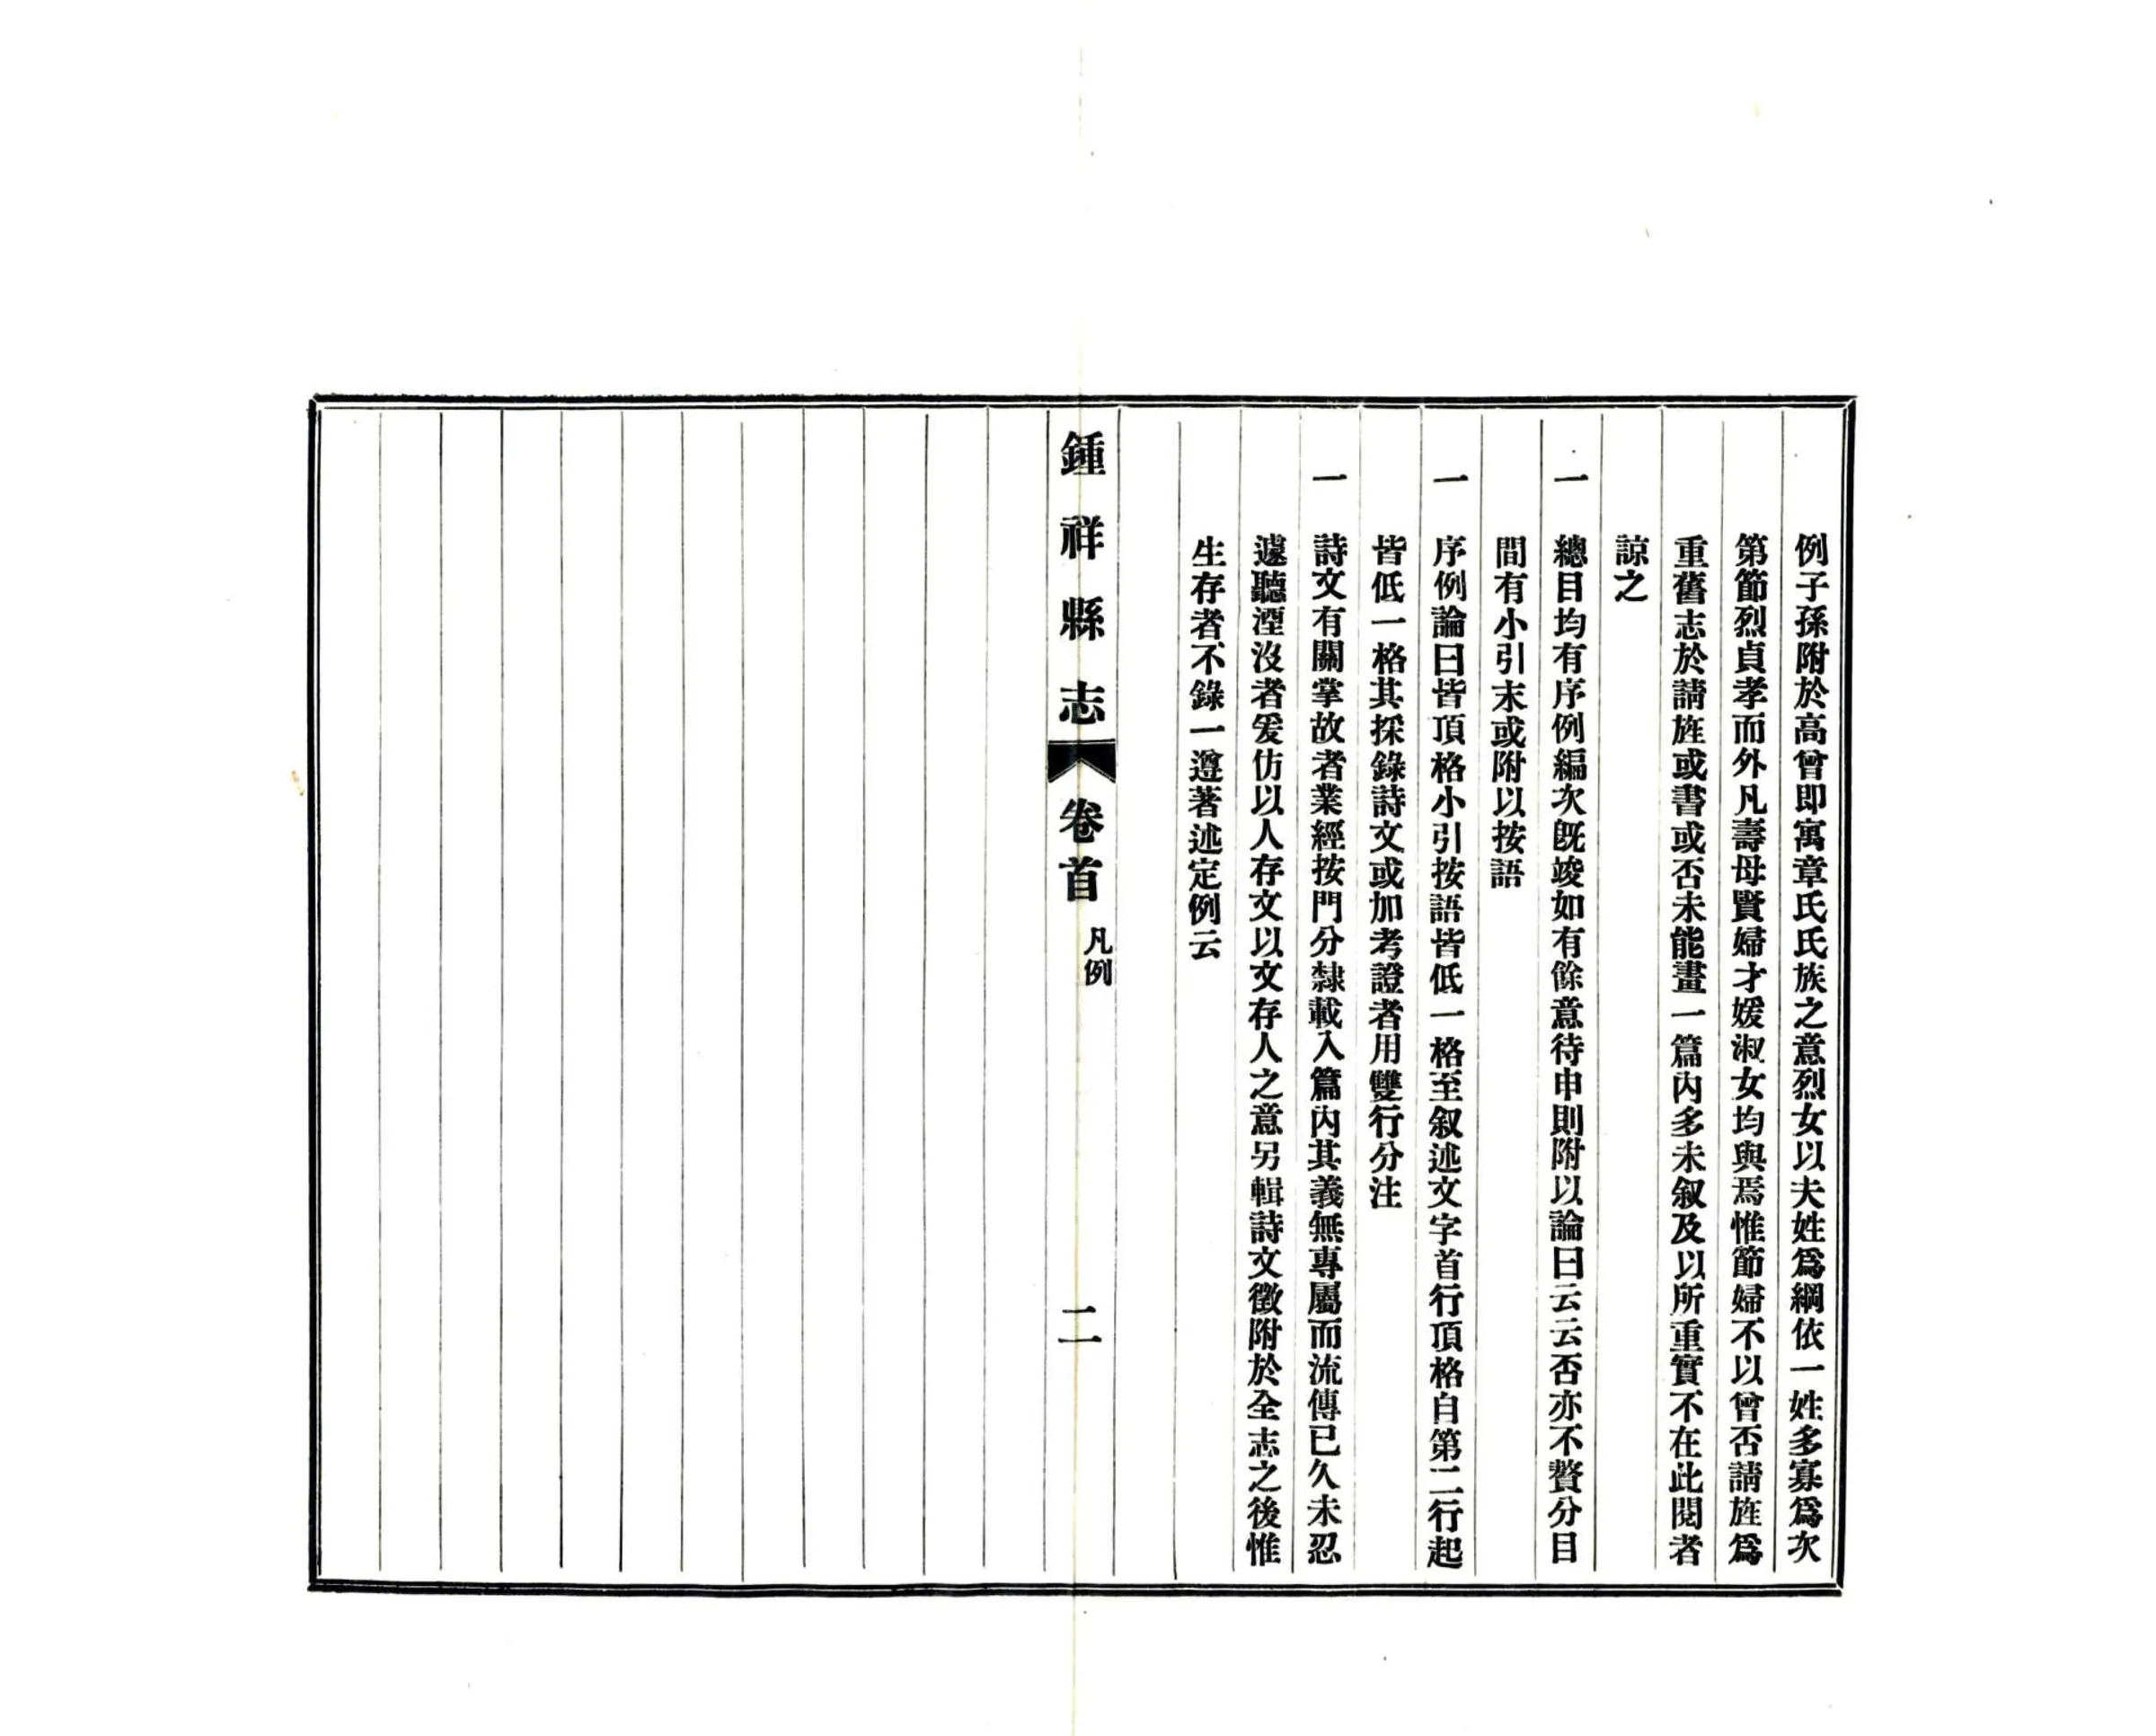 例子孫附於高曾即寓章氏氏族之意烈女以夫姓爲綱依一姓多寡爲次
第節烈貞孝而外凡壽母賢婦才媛淑女均與焉惟節婦不以曾否請旌爲
重舊志於請旌或書或否未能畫一篇內多未叙及以所重實不在此閱者
諒之
一 總目均有序例編次旣竣如有餘意待申則附以論曰云云否亦不贅分目
間有小引末或附以按語
一 序例論曰皆頂格小引按語皆低一格至叙述文字首行頂格自第二行起
皆低一格其採錄詩文或加考證者用雙行分注
一 詩文有關掌故者業經按門分隸載入篇內其義無專屬而流傳已久未忍
遽聽湮沒者爰仿以人存文以文存人之意另輯詩文徵附於全志之後惟
生存者不錄一遵著述定例云
鍾祥縣志 卷首 凡例 二